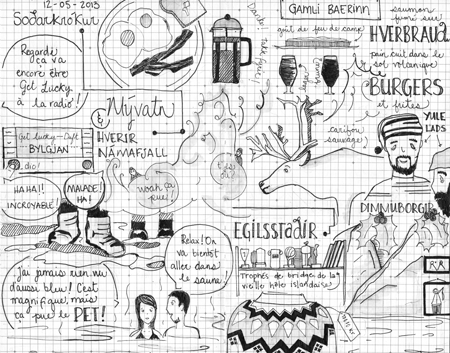 12-05-2013
Sodarkrókur
Regarde
ça va
encore être
Get Lucky
à la radio!
& Mývatn
HVERIR
NÁMAFJALL
Get lucky - Daft
BYLGJAN
HAHA!!
INCROYABLE!
MAUDE!
HA!
woah ça
pue!
J'ai jamais rien vu
d'aussi bleu! C'est
magnifique, mais
ça pue le PET!
Relax! On
va bientôt
aller dans
le sauna!
GAMLI BAERINN
goût de feu de camp
saumon
fumé sur
HVERBRAUÐ
pain cuit dans le
sol volcanique
BURGERS
et frites
caribou
sauvage
YULE
LADS
DIMMUBORGIR
EGILSSTAÐIR
Trophés de bridge de la
vieille hôte islandaise